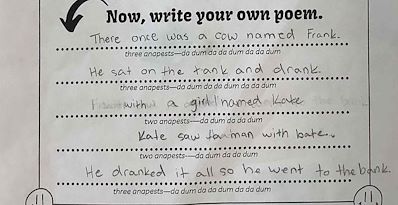 Now, write your own poem.
There once was a cow named Frank.
three anapests—da dum da da dum da da dum
He sat on the tank and drank.
three anapests—da dum da da dum da da dum
with a girl named Kate
two anapests—da dum da da dum
Kate saw man with bate.
two anapests—da dum da da dum
He dranked it all so he went to the bank.
three anapests—da dum da da dum da da dum